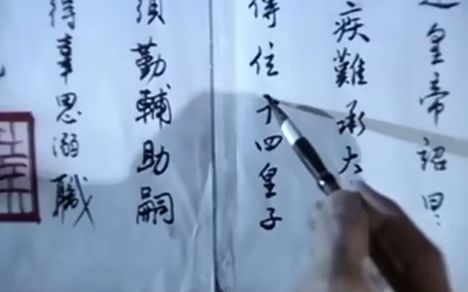 皇帝詔曰:
疾難承大
傳位十四皇子
須勤輔助嗣
得辜恩溺職